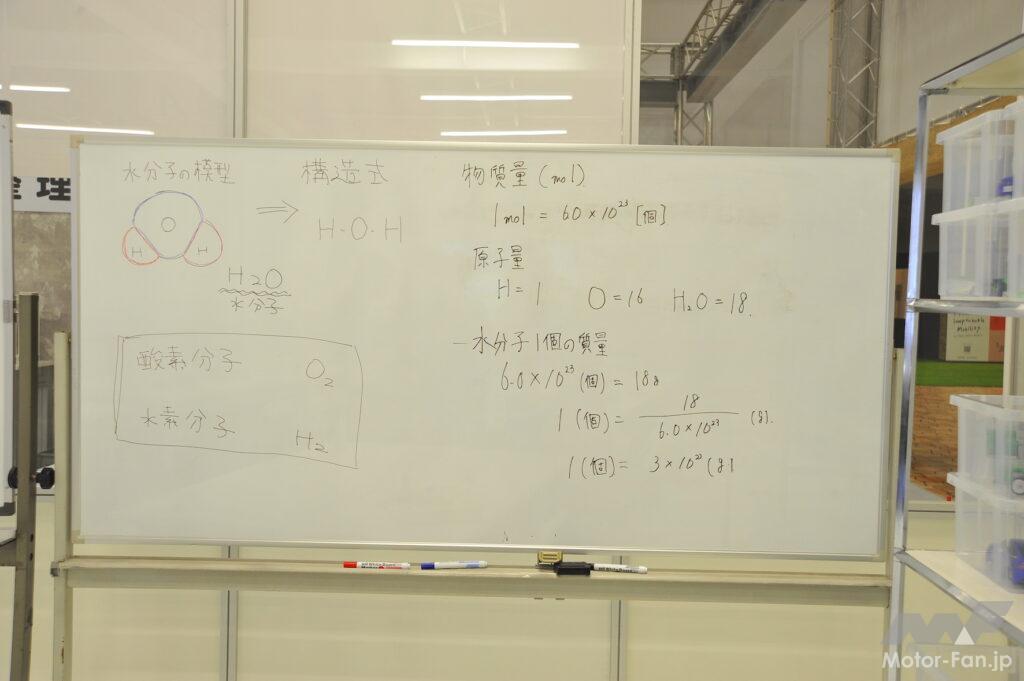 水分子の模型
O
H H
H2O
水分子
⇒
構造式
H・O・H
酸素分子 O2
水素分子 H2
物質量(mol)
1mol = 6.0×10^23 [個]
原子量
H = 1 O = 16 H2O = 18.
一水分子1個の質量
6.0×10^23 (個) = 18g
1(個) = 18/6.0×10^23 (g).
1(個) = 3×10^23 (g)
理
Motor-Fan.jp